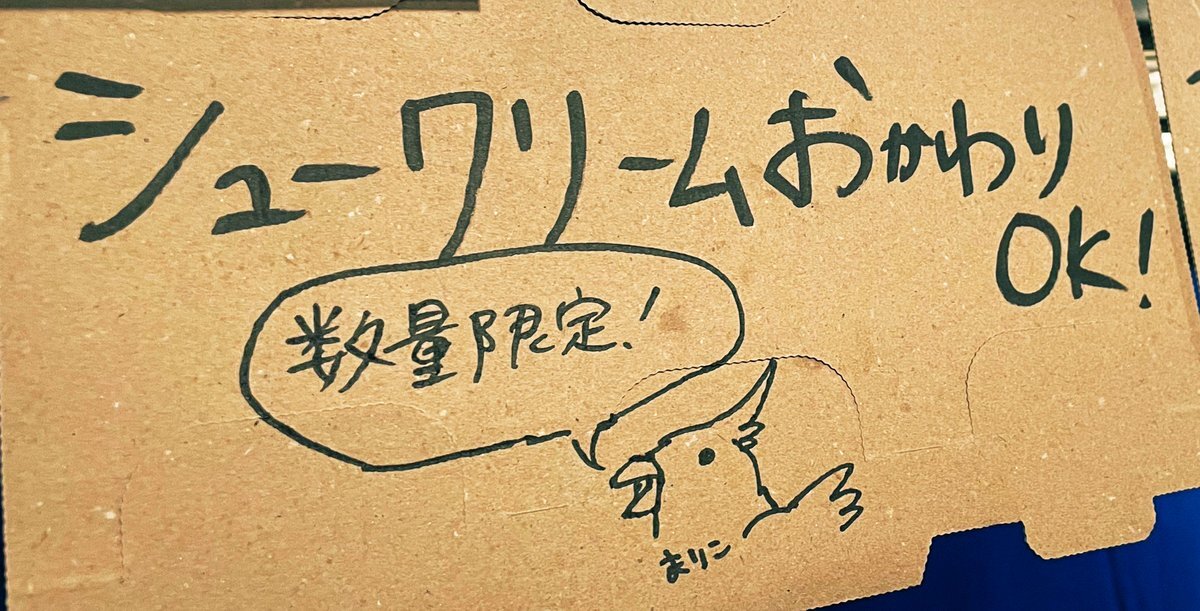 シュークリームおかわり
OK!
数量限定!
まりこ